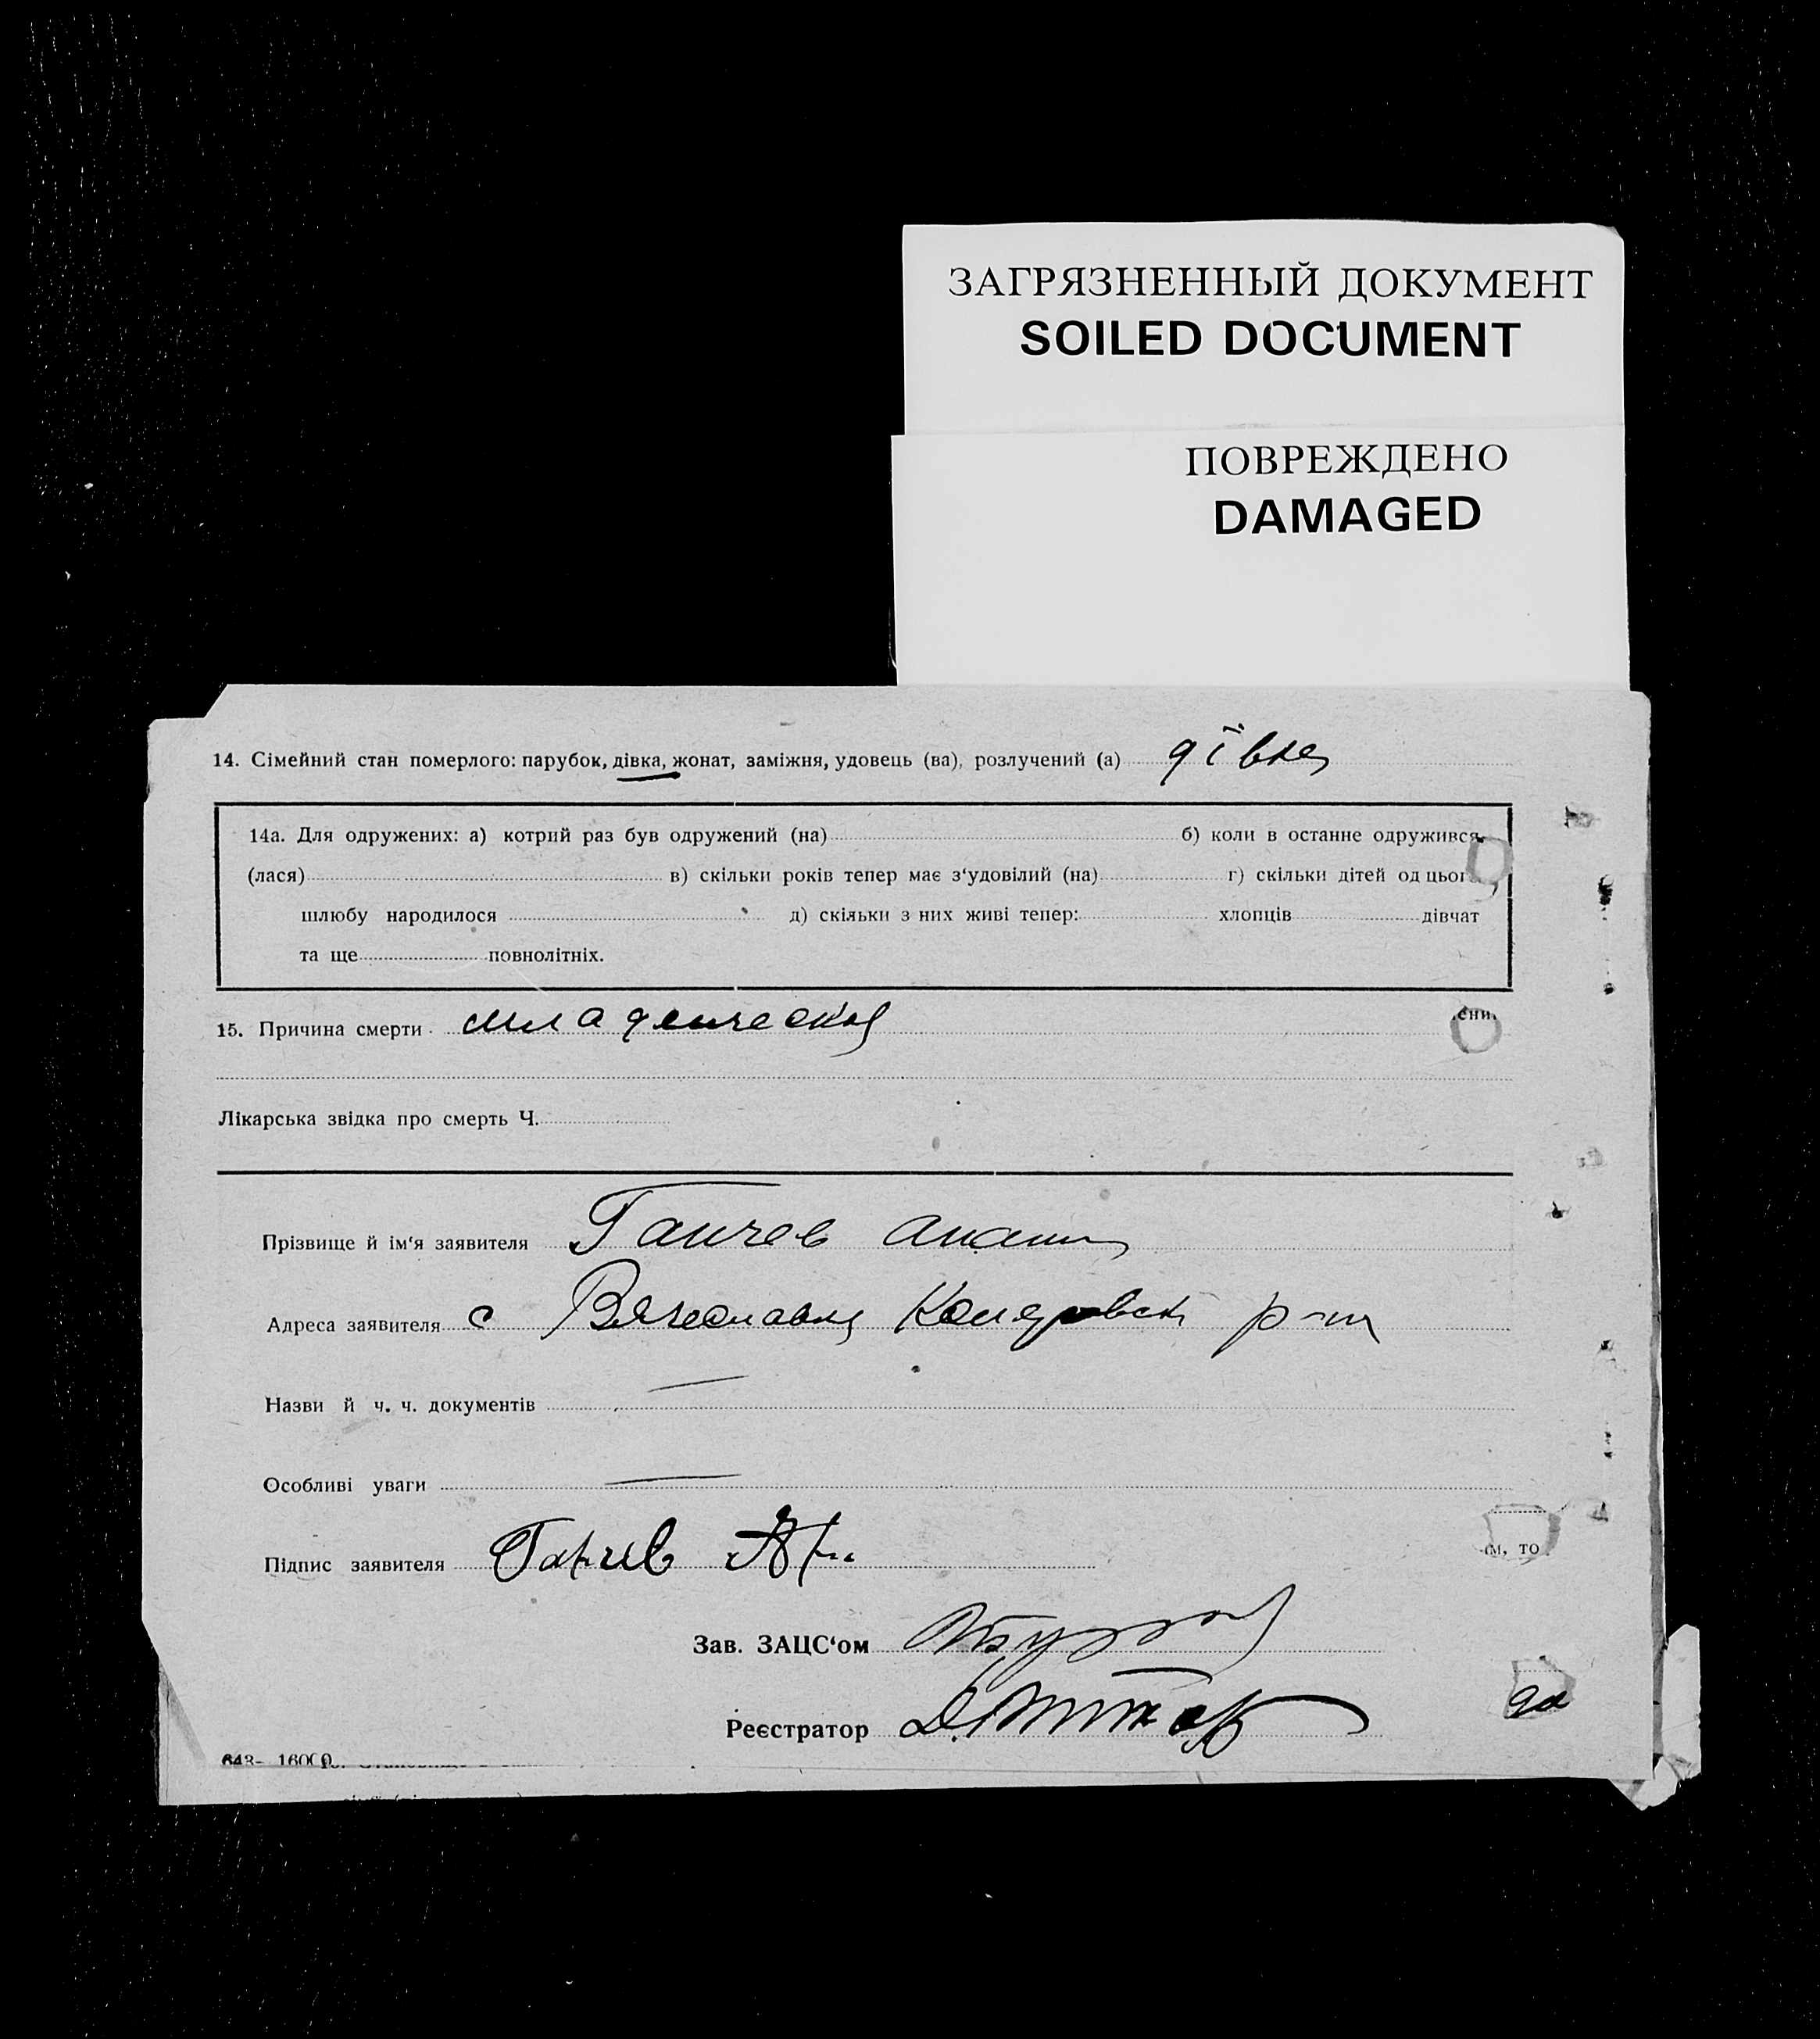 ЗАГРЯЗНЕННЫЙ ДОКУМЕНТ
SOILED DOCUMENT
ПОВРЕЖДЕНО
DAMAGED
14. Сімейний стан померлого: парубок, дівка, жонат, заміжня, удовець (ва), розлучений (а) дівка
14а. Для одружених: а) котрий раз був одружений (на) б) коли в останнє одружився
(лася) в) скільки років тепер має з‘удовілий (на) г) скільки дітей од цього
шлюбу народилося д) скільки з них живі тепер: хлопців дівчат
та ще повнолітніх.
15. Причина смерти младенческая
Лікарська звідка про смерть Ч.
Прізвище й ім‘я заявителя Ганчев
Адреса заявителя с Вячеславка р-ну
Назви й ч. ч. документів —
Особливі уваги —
Підпис заявителя Ганчев
ім, то
Зав. ЗАЦС‘ом
Реєстратор